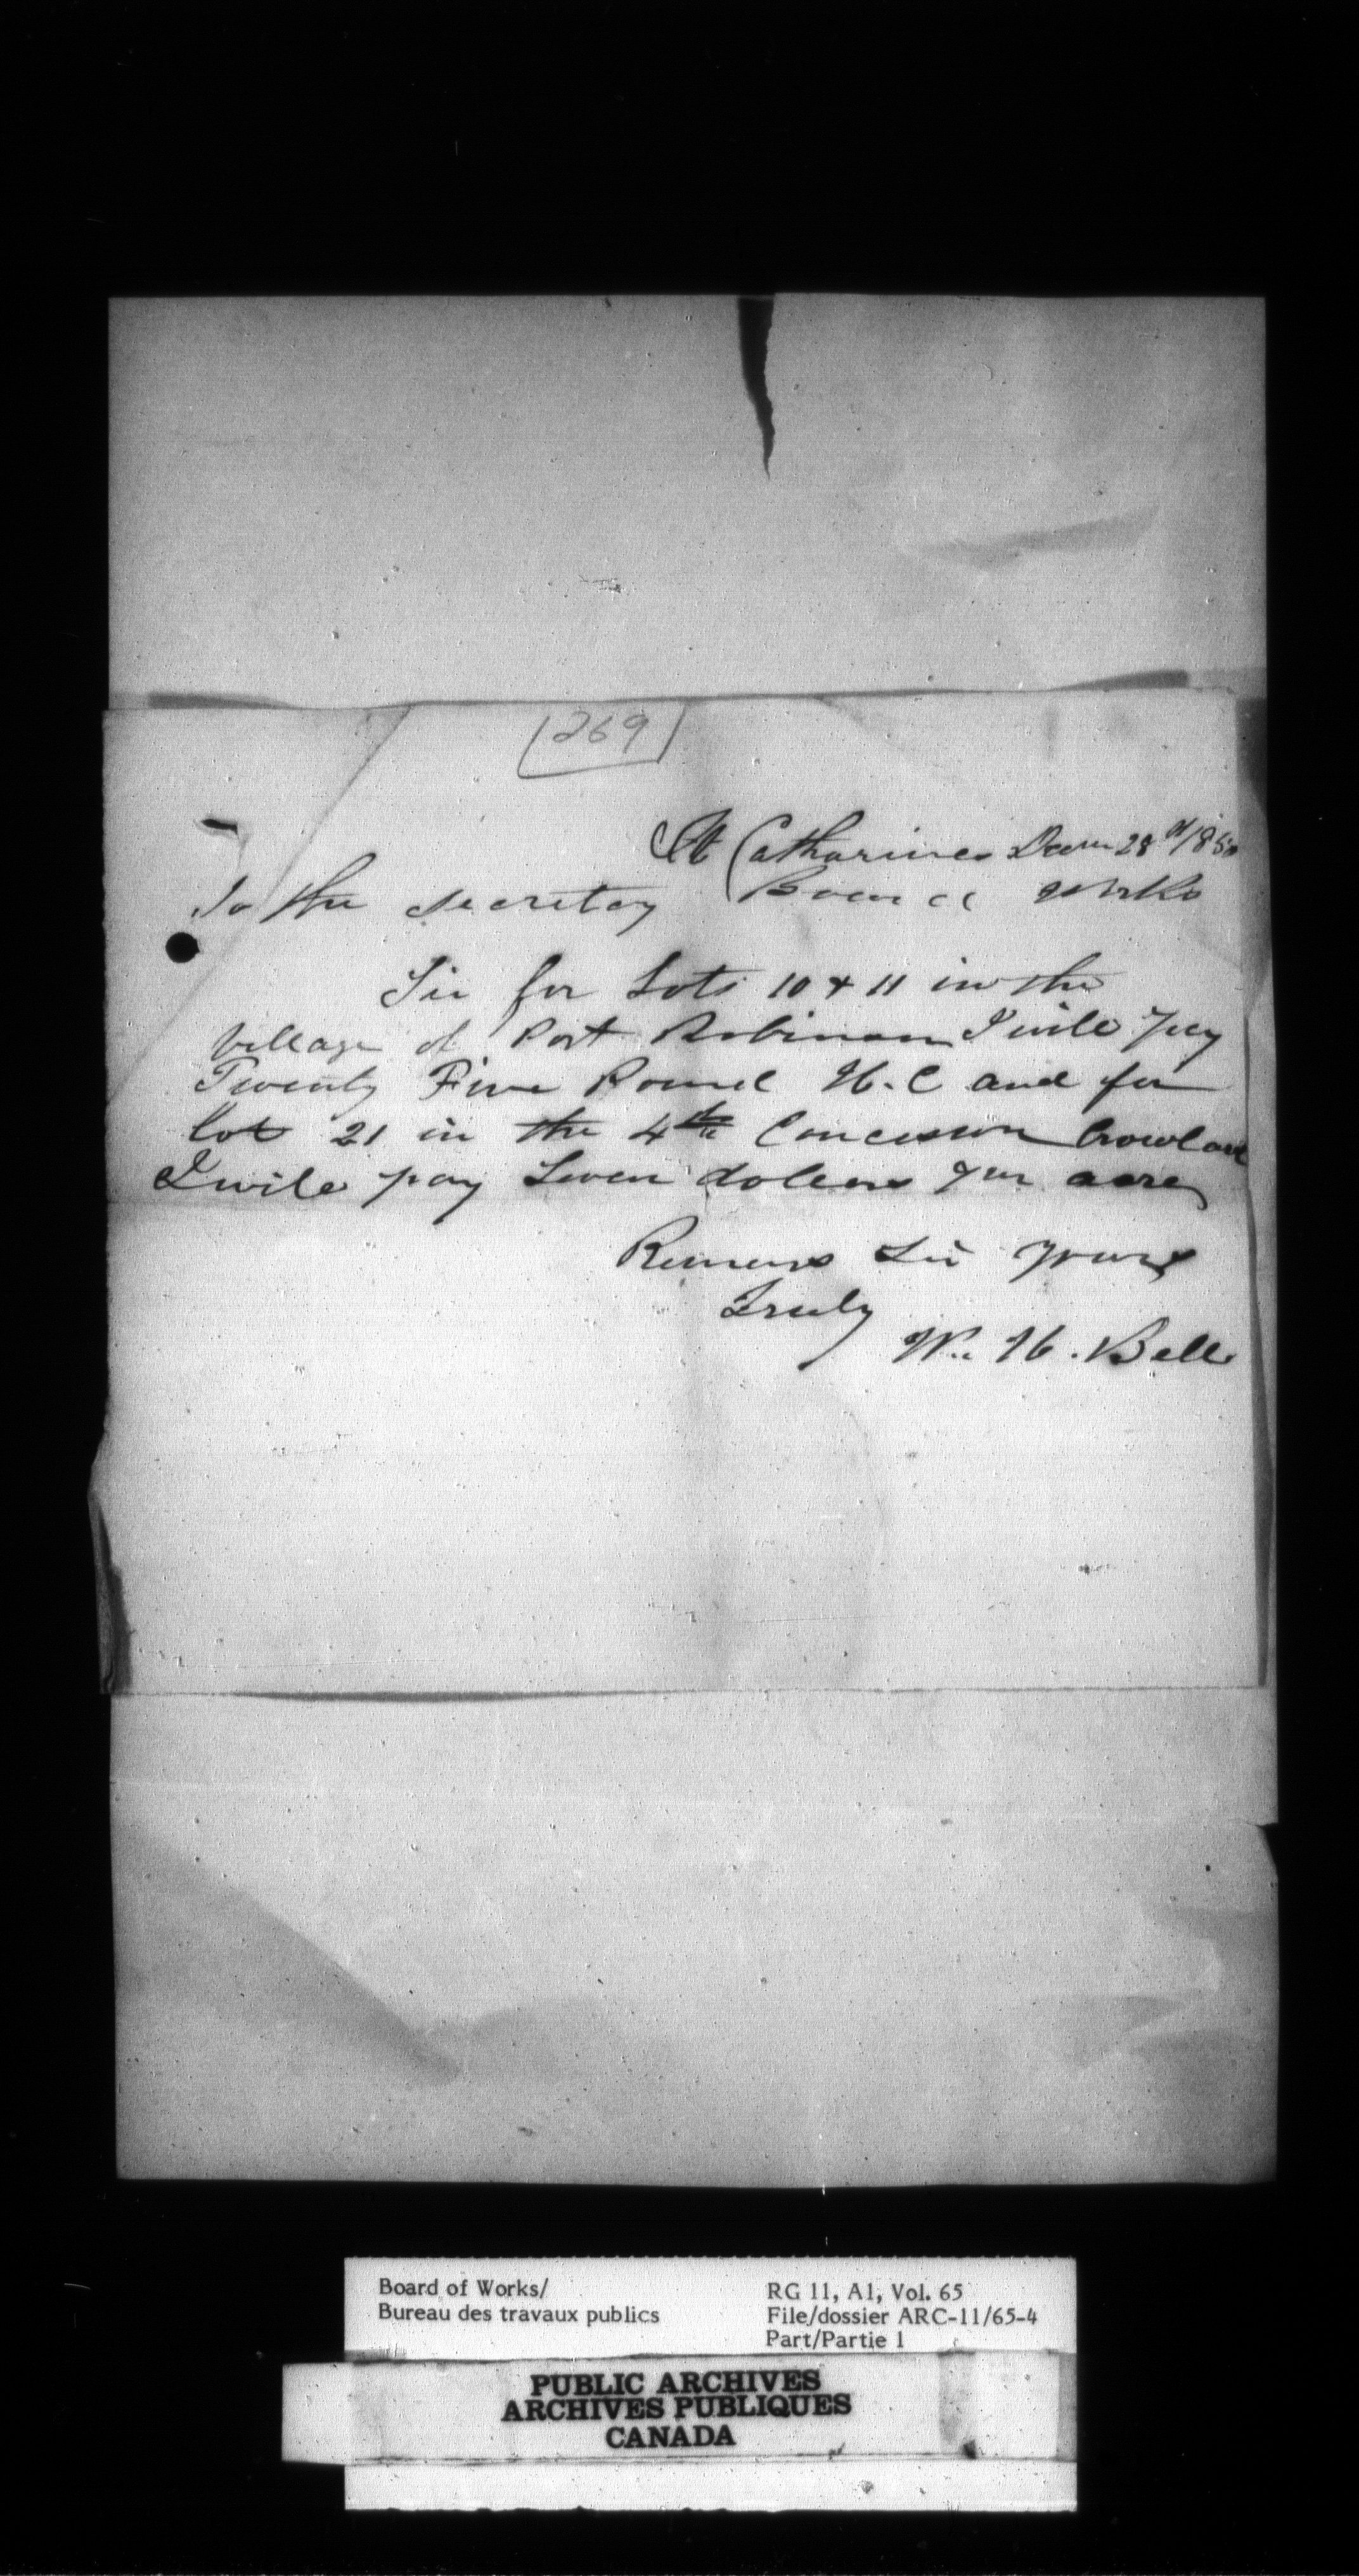 269
St Catharines Decm 28th/1850
To the Secretay Board Works
Sir for Lots 10 & 11 in the
village of Port Robinson I will Pay
Twenty Five Pound H.C and for
lot 21 in the 4th Concession Crowland
I will pay Seven dollars per acre
Remains Sir yours
Truly
Wm H. Bell
Board of Works/
Bureau des travaux publics
RG 11, A1, Vol. 65
File/dossier ARC-11/65-4
Part/Partie 1
PUBLIC ARCHIVES
ARCHIVES PUBLIQUES
CANADA